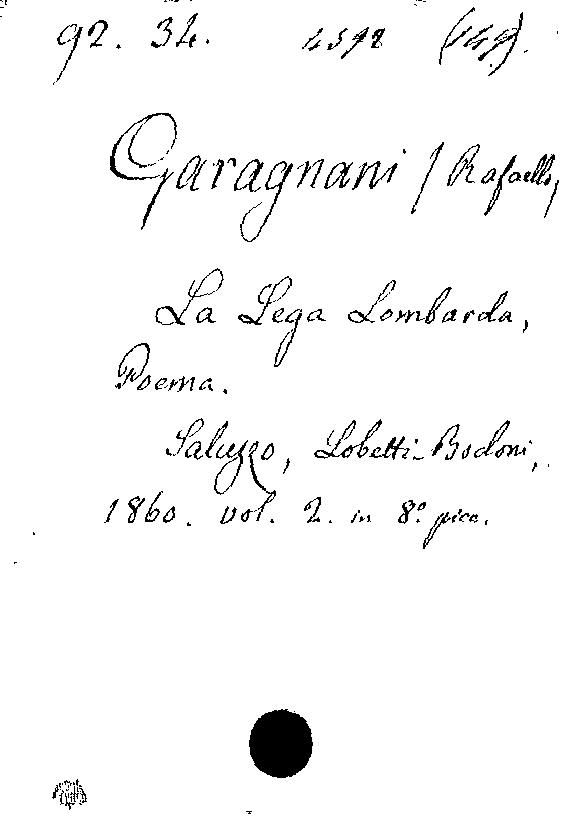 92. 34. 4592 (149).
Garagnani / Rafaello,
La Lega Lombarda,
Poema.
Saluzzo, Lobetti-Bodoni,
1860. vol. 2. in 8.º picc.